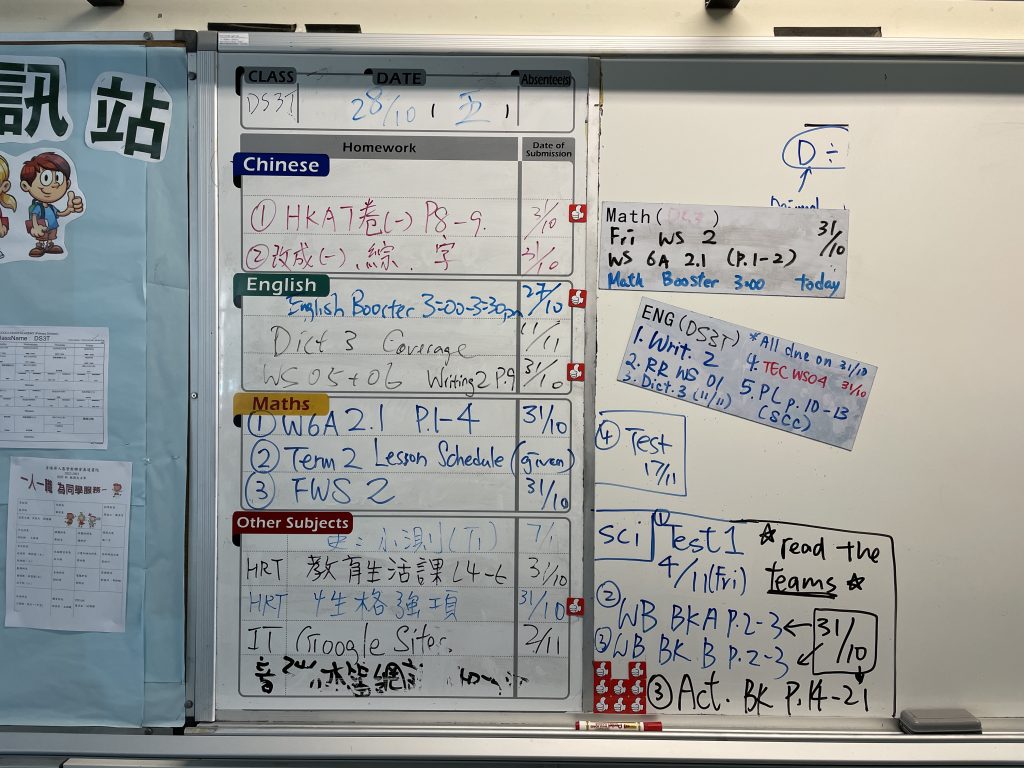 訊站
CLASS DATE Absentee(s)
DS3T 28/10 ( 五 )
Homework Date of Submission
Chinese
① HKA7卷(一) P8-9. 31/10
②改成(一)、綜、字 31/10
English
English Booster 3:00-3:30pm 27/10
Dict 3 Coverage 11/11
WS 05+06 Writing 2 P.9 31/10
Maths
① W6A 2.1 P.1-4 31/10
② Term 2 Lesson Schedule (given)
③ FWS 2 31/10
Other Subjects
小測(T1) 7/1
HRT 教育生活課 L4-6 31/10
HRT 性格強項 31/10
IT Google Sites. 2/11
音
D ÷
Math (DS3)
Fri WS 2 31/10
WS 6A 2.1 (P.1-2)
Math Booster 3:00 today
ENG (DS3T) *All due on 31/10
1. Writ. 2 4. TEC WS04 31/10
2. RR WS 01 5. PL p.10-13
3. Dict. 3 (11/11) (SCC)
④ Test
17/11
sci ① Test 1 ☆ read the
4/11(Fri) teams ☆
② WB BKA P.2-3 ← 31/10
③ WB BK B P.2-3
③ Act. BK P.14-21
className DS3T
一人一職 為同學服務